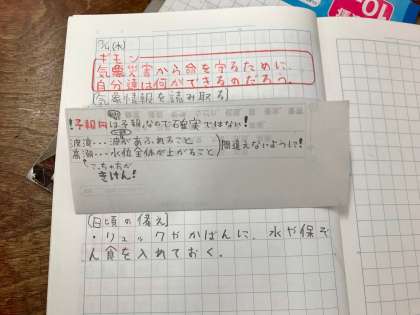 (水)
ギモン
気象災害から命を守るために、
自分達は何ができるのだろう。
[気象情報を読み取る]
!予報円は予報なので確実ではない!
波浪・・・波があふれること
高潮・・・水位全体が上がること
間違えないように!
こっちの方が
きけん!
[日頃の備え]
・リュックやかばんに、水や保ぞ
ん食を入れておく。